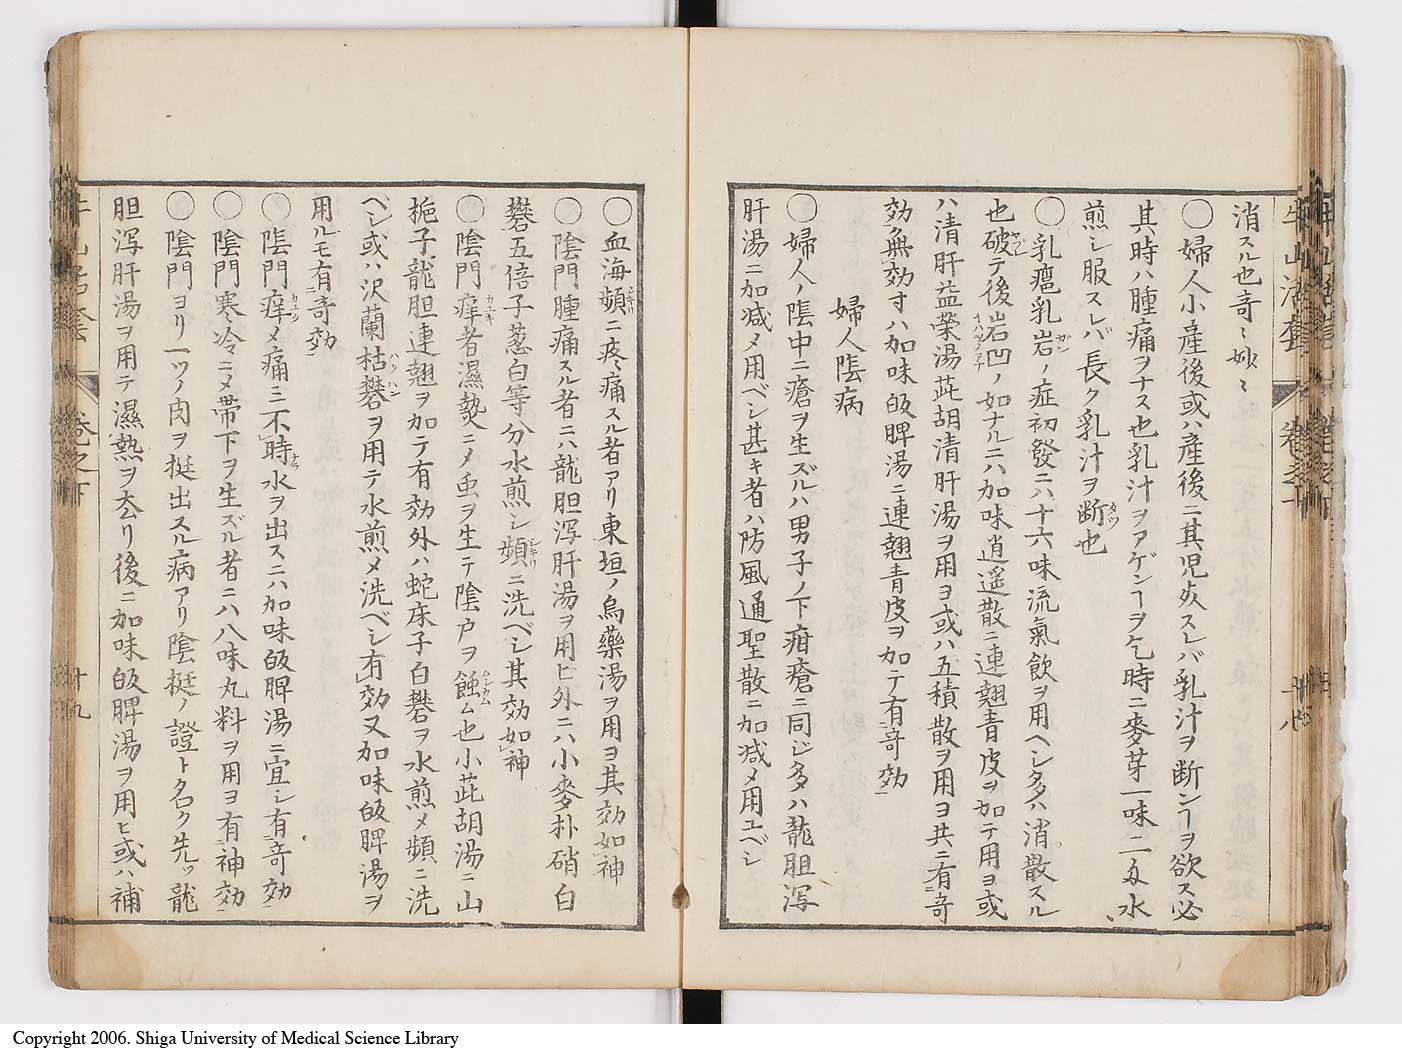 消スル也奇〻妙〻
〇婦人小産後或ハ産後ニ其児夭スレバ乳汁ヲ断ンヿヲ欲ス必
其時ハ腫痛ヲナス也乳汁ヲアゲンヿヲ乞時ニ麥芽一味二匁水
煎シ服スレバ長ク乳汁ヲ断也
〇乳癰乳岩ノ症初發ニハ十六味流氣飲ヲ用ヘシ多ハ消散スル
也破テ後岩凹ノ如ナルニハ加味逍遥散ニ連翹青皮ヲ加テ用ヨ或
ハ清肝益榮湯茈胡清肝湯ヲ用ヨ或ハ五積散ヲ用ヨ共ニ有奇
効無効寸ハ加味皈脾湯ニ連翹青皮ヲ加テ有奇効
婦人陰病
〇婦人ノ陰中ニ瘡ヲ生ズルハ男子ノ下疳瘡ニ同ジ多ハ龍胆泻
肝湯ニ加減〆用ベシ甚キ者ハ防風通聖散ニ加減〆用ユベシ
牛山活套 卷之下 十八
〇血海頻ニ疼痛スル者アリ東垣ノ烏藥湯ヲ用ヨ其効如神
〇陰門腫痛スル者ニハ龍胆泻肝湯ヲ用ヒ外ニハ小麥朴硝白
礬五倍子葱白等分水煎シ頻ニ洗ベシ其効如神
〇陰門痒者濕熱ニ〆虫ヲ生テ陰戸ヲ蝕ム也小茈胡湯ニ山
梔子龍胆連翹ヲ加テ有効外ハ蛇床子白礬ヲ水煎〆頻ニ洗
ベシ或ハ沢蘭枯礬ヲ用テ水煎〆洗ベシ有効又加味皈脾湯ヲ
用ルモ有奇効
〇陰門痒〆痛ミ不時水ヲ出スニハ加味皈脾湯ニ宜シ有奇効
〇陰門寒冷ニ〆帯下ヲ生ズル者ニハ八味丸料ヲ用ヨ有神効
〇陰門ヨリ一ツノ肉ヲ挺出スル病アリ陰挺ノ證ト名ク先ツ龍
胆泻肝湯ヲ用テ濕熱ヲ去リ後ニ加味皈脾湯ヲ用ヒ或ハ補
牛山活套 卷之下 十九
Copyright 2006. Shiga University of Medical Science Library